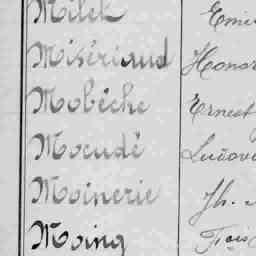 Milek Emi
Misériaud Honor
Mobèche Ernest
Moeudé Ludovi
Moinerie Jh.
Moing Fois